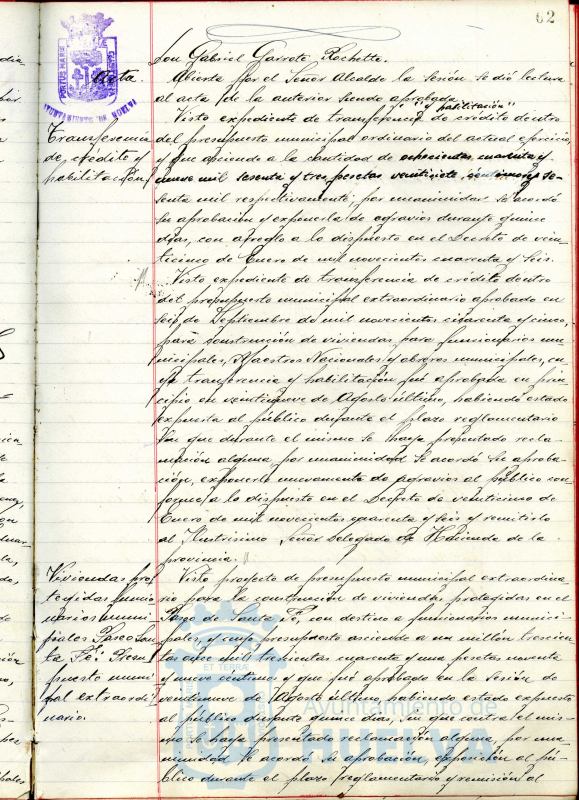 62
Don Gabriel Garrote Rochette.
Acta.
Abierta por el Señor Alcalde la sesión se dió lectura
al acta de la anterior siendo aprobada.
"y habilitación"
Transferencia
de crédito y
habilitación
Visto expediente de transferencia de crédito dentro
del presupuesto municipal ordinario del actual ejercicio,
y que asciende a la cantidad de ochocientas cuarenta y
nueve mil sesenta y tres pesetas veintisiete céntimos y se-
senta mil respectivamente, por unanimidad se acordó
su aprobación y exponerla de agravios durante quince
días, con arreglo a lo dispuesto en el Decreto de vein-
ticinco de Enero de mil novecientos cuarenta y seis.
Visto expediente de transferencia de crédito dentro
del presupuesto municipal extraordinario aprobado en
seis de Septiembre de mil novecientos cincuenta y cinco,
para construcción de viviendas para funcionarios mu-
nicipales, Maestros Nacionales y obreros municipales, cu-
ya transferencia y habilitación fué aprobada en prin-
cipio en veintinueve de Agosto último, habiendo estado
expuesta al público durante el plazo reglamentario
sin que durante el mismo se haya presentado recla-
mación alguna por unanimidad se acordó su aproba-
ción, exponerlo nuevamente de agravios al público con-
forme a lo dispuesto en el Decreto de veinticinco de
Enero de mil novecientos cuarenta y seis y remitirlo
al Ilustrísimo Señor Delegado de Hacienda de la
provincia.
Viviendas pro
tegidas funcio
narios muni-
cipales Paseo San
ta Fé: Presu
puesto muni
pal extraordi
nario.
Visto proyecto de presupuesto municipal extraordina-
rio para la construcción de viviendas protegidas en el
Paseo de Santa Fé, con destino a funcionarios munici-
pales, y cuyo presupuesto asciende a un millón trescien
tas mil trescientas cuarenta y una pesetas noventa
y nueve céntimos y que fué aprobado en la sesión de
veintinueve de Agosto último, habiendo estado expuesto
al público durante quince días, sin que contra el mis-
mo se haya presentado reclamación alguna, por una-
nimidad se acordó su aprobación, exposición al pú-
blico durante el plazo reglamentario y remisión al
AYUNTAMIENTO DE HUELVA
Ayuntamiento de
HUELVA